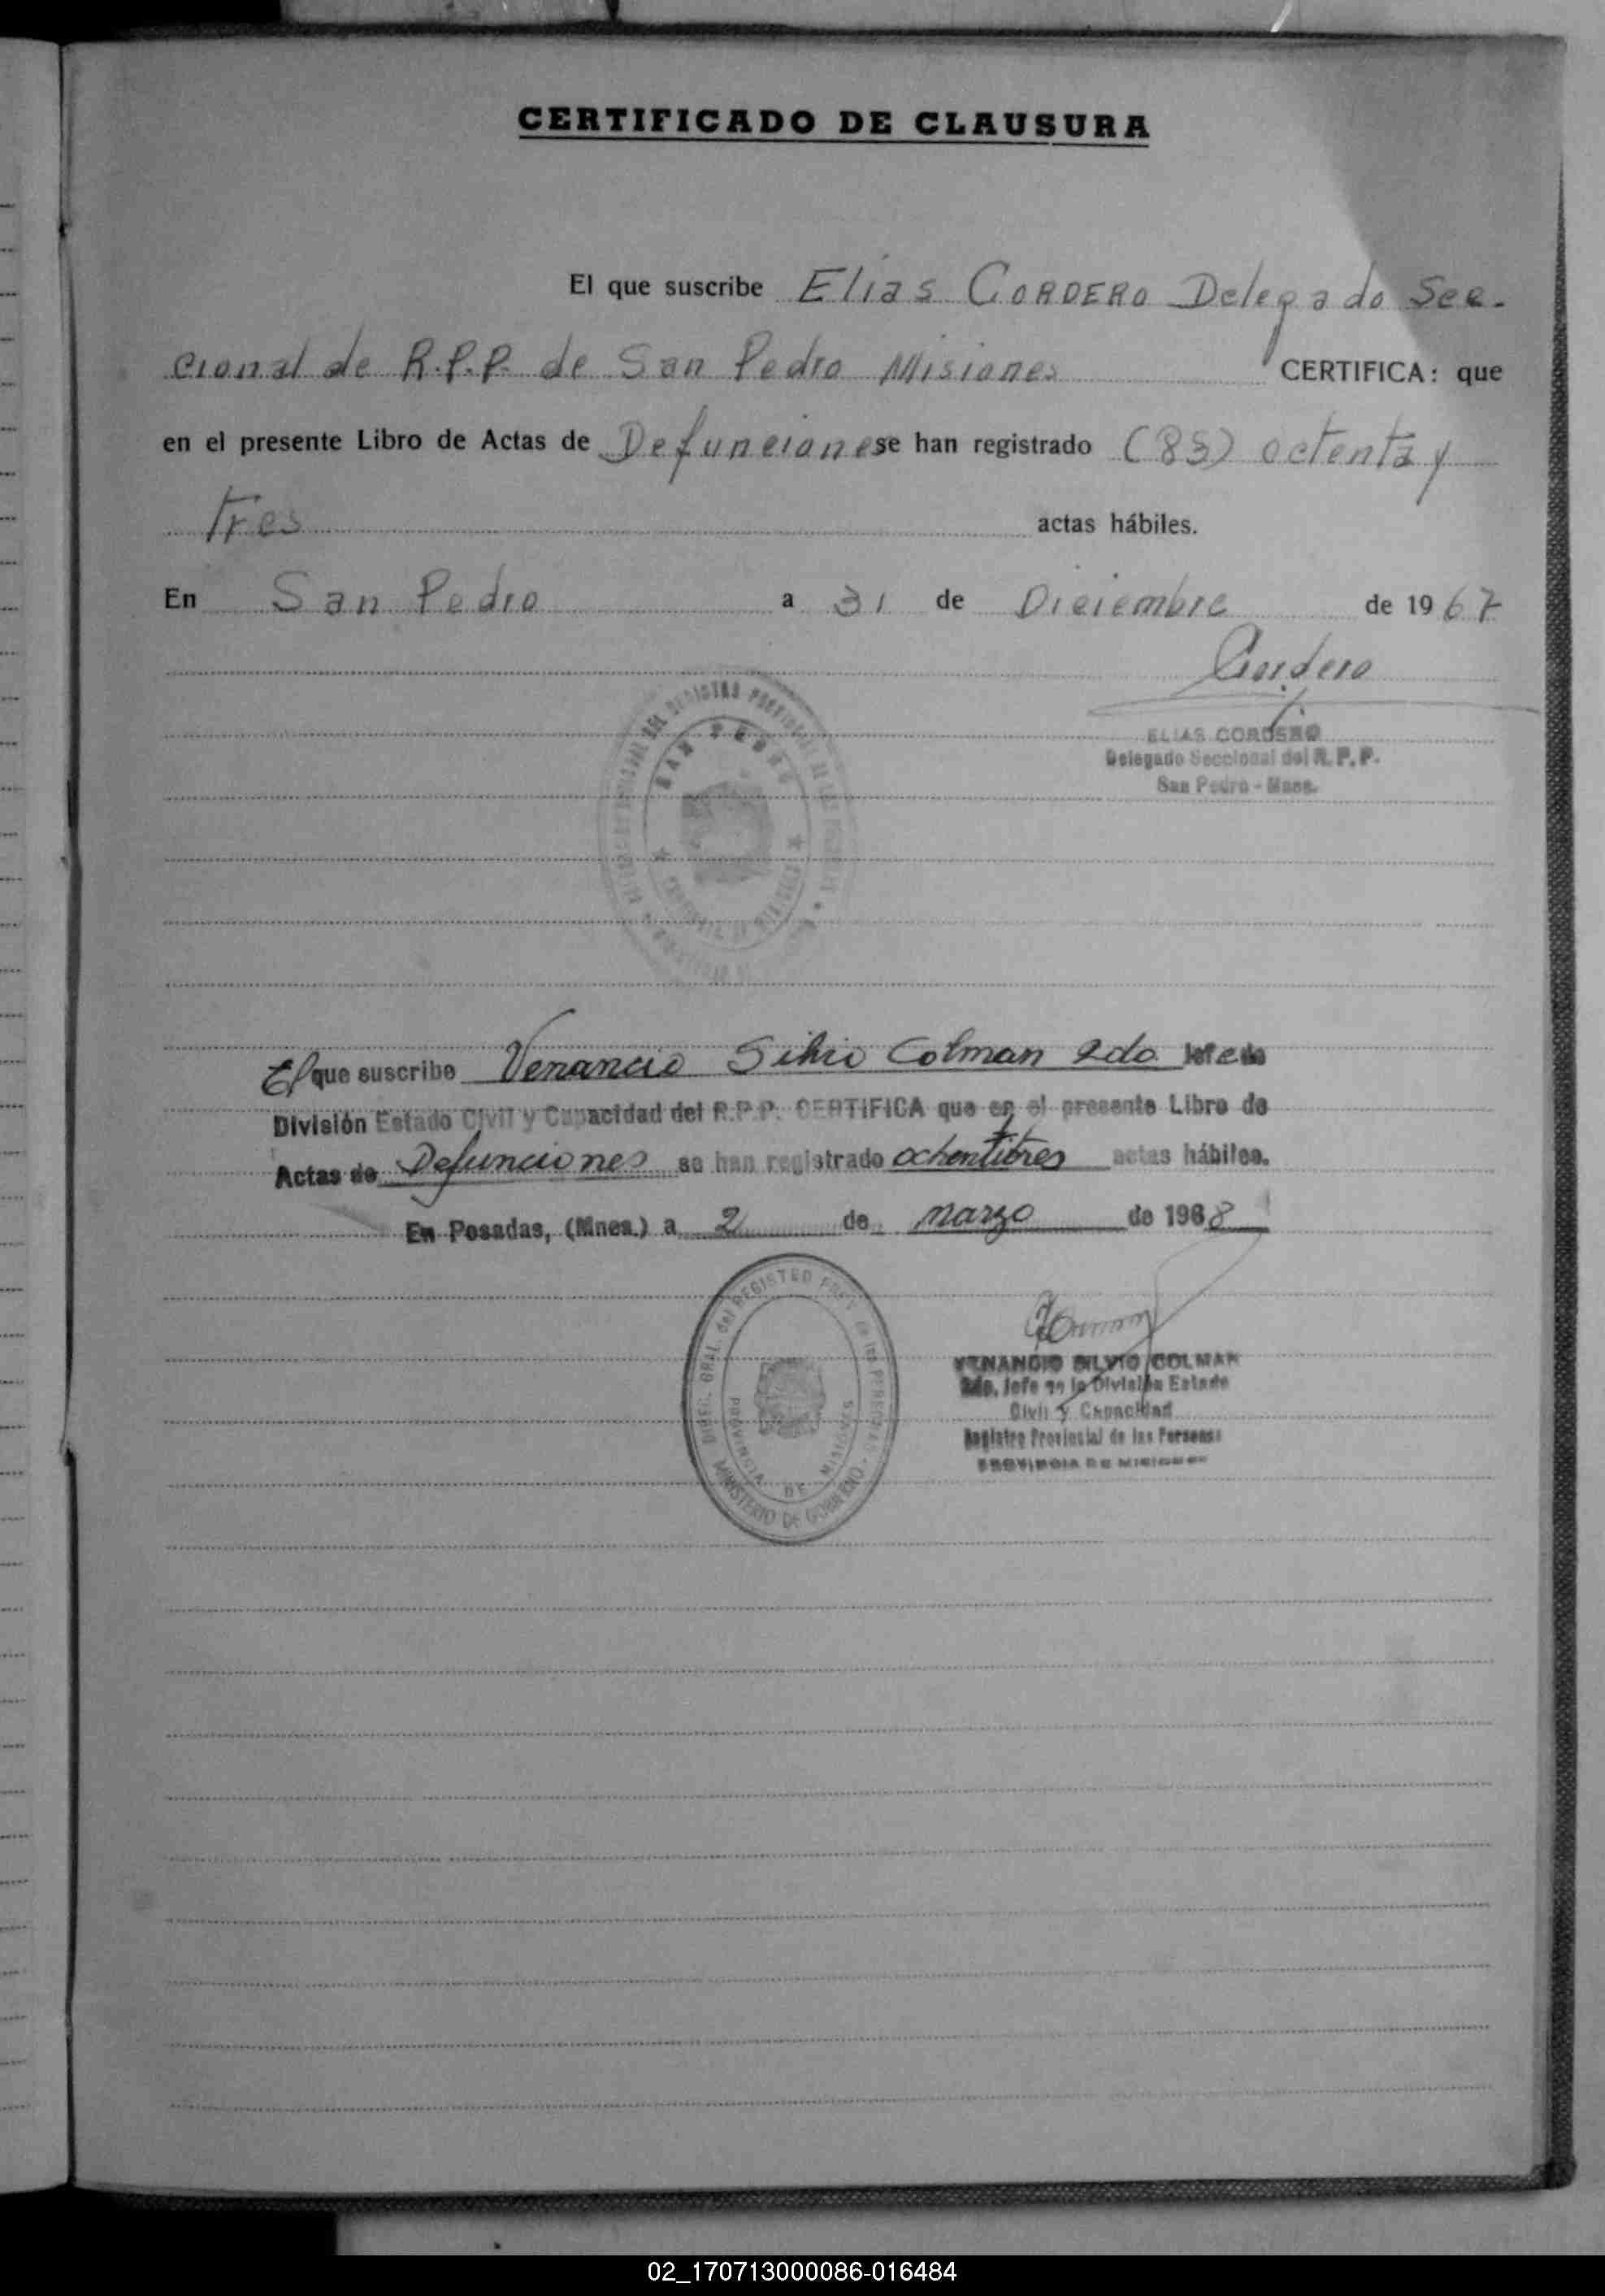 CERTIFICADO DE CLAUSURA
El que suscribe Elias CORDERO Delegado Sec-
cional de R.P.P. de San Pedro Misiones CERTIFICA: que
en el presente Libro de Actas de Defunciones se han registrado (83) octenta y
tres actas hábiles.
En San Pedro a 31 de Diciembre de 1967
Cordero
ELIAS CORDERO
Delegado Seccional del R.P.P.
San Pedro - Mnes.
SAN PEDRO
El que suscribe Venancio Silvio Colman 2do Jefe de
División Estado Civil y Capacidad del R.P.P. CERTIFICA que en el presente Libro de
Actas de Defunciones se han registrado ochentitres actas hábiles.
En Posadas, (Mnes.) a 2 de marzo de 1968
DIREC. GRAL. del REGISTRO PROV. de las PERSONAS
PROVINCIA DE MISIONES
MINISTERIO DE GOBIERNO
VENANCIO SILVIO COLMAN
2do. Jefe de la División Estado
Civil y Capacidad
Registro Provincial de las Personas
PROVINCIA DE MISIONES
02_170713000086-016484